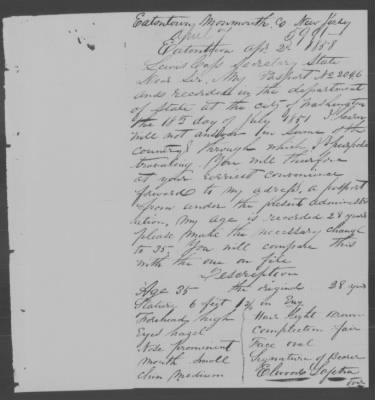 Eatontown Monmouth Co New Jersey
April 2d
Eatontown Apl 2d 1858
Lewis Cass Secretary State
Dear Sir, My Pasport No 2046
and recorded in the department
of State at the city of Washington
the 18th day of July 1851 I learn
will not answer for some of the
country's through which I purpose
traveling. You will therefore
at your earliest convenience
forward to my adress, a pasport
from under the present administra
ution, my age is recorded 28 years
please make the necessary change
to 35, You will compare this
with the one on file
Description
Age 35 the original 28 years
Stature 6 feet 1 3/4 in Eng
Forehead high Hair light brown
Eyes hazel Complection fair
Nose prominent Face oval
mouth small Signature of Bearer
chin medium Elwood
over